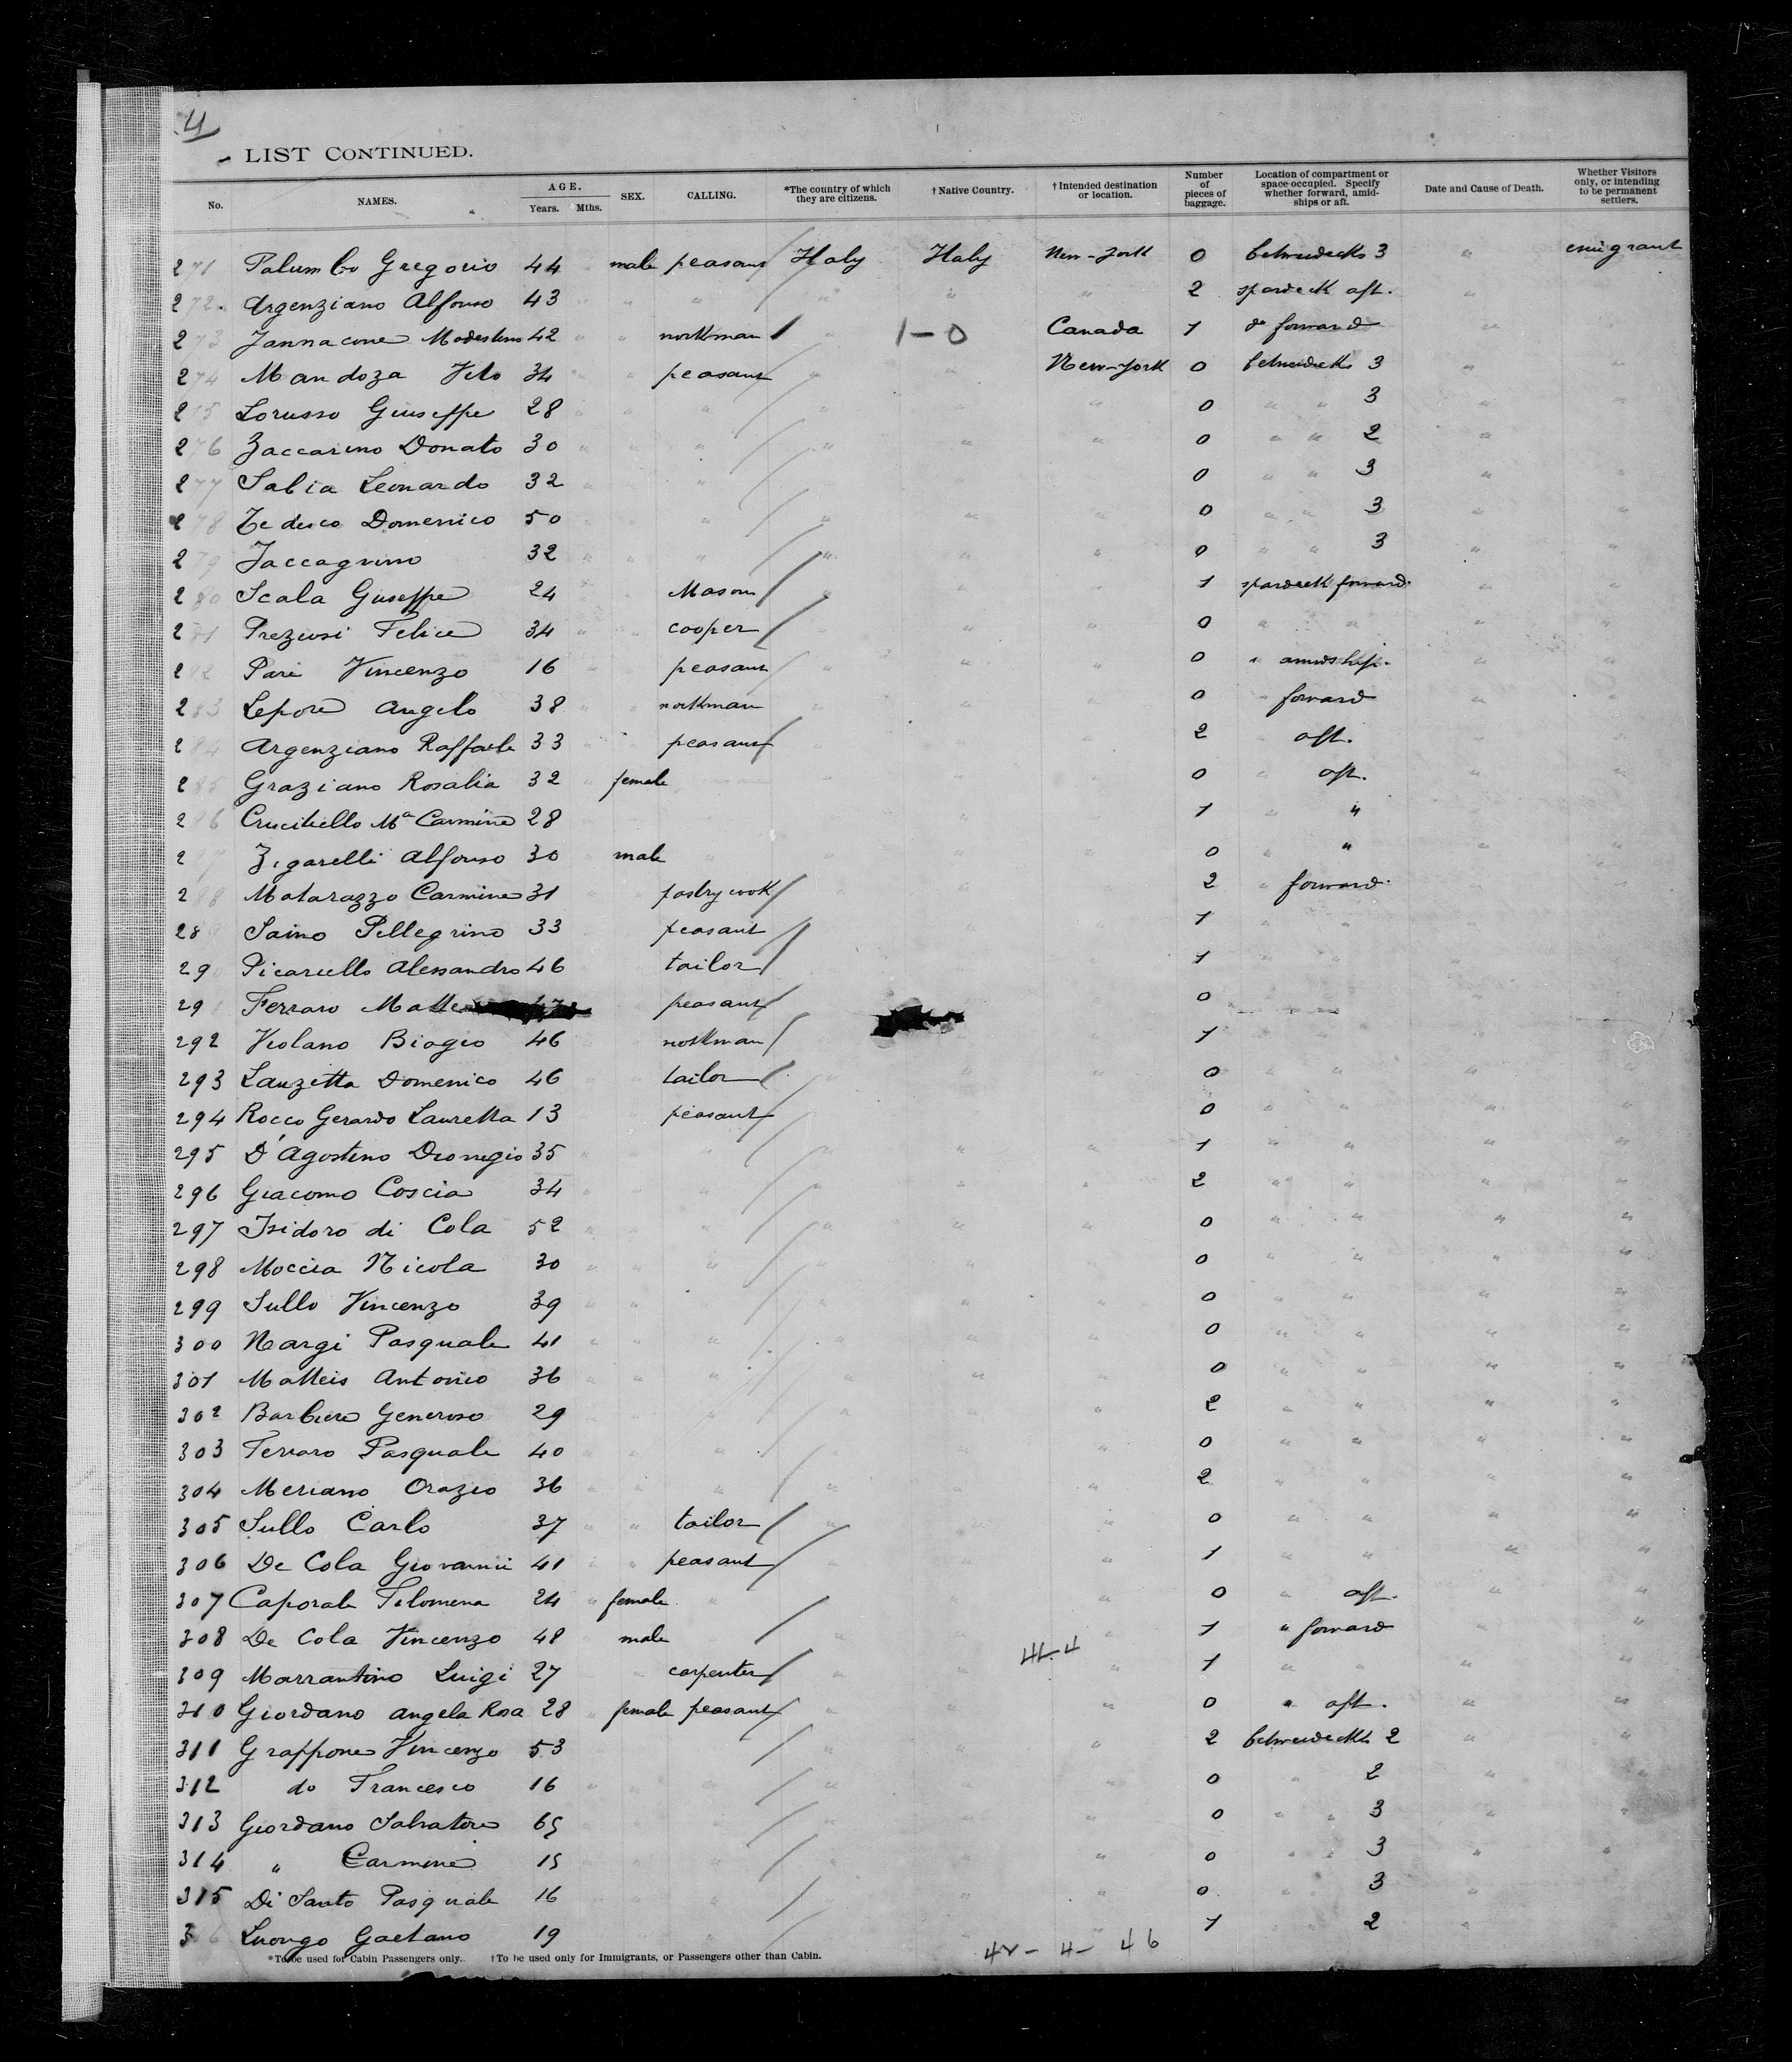 4
LIST CONTINUED.
No. NAMES. AGE. Years. Mths. SEX. CALLING. *The country of which they are citizens. †Native Country. †Intended destination or location. Number of pieces of baggage. Location of compartment or space occupied. Specify whether forward, amidships or aft. Date and Cause of Death. Whether Visitors only, or intending to be permanent settlers.
271 Palumbo Gregorio 44 " male peasant Italy Italy New-York 0 betweidecks 3 " emigrant
272 Argenziano Alfonso 43 " " " " " " 2 spardeck aft. "
273 Jannacone Modestino 42 " " workman " 1-0 Canada 1 do forward "
274 Mandoza Vito 34 " " peasant " " New-York 0 betweidecks 3 " "
275 Lorusso Giuseppe 28 " " " " " " 0 " " 3 " "
276 Zaccarino Donato 30 " " " " " " 0 " " 2 "
277 Sabia Leonardo 32 " " " 0 " " 3 " "
278 Tedesco Domenico 50 " " " " " 0 " " 3 " "
279 Jaccagnino 32 " " " " " " 0 " " 3 " "
280 Scala Guseppe 24 Mason " " 1 spardeck forward " "
281 Preziosi Felice 34 " " cooper " " " 0 " " " "
282 Pari Vincenzo 16 " peasant " " " 0 " amidship. " "
283 Lepore Angelo 38 " " workman " " " 0 " forward "
284 Argenziano Raffaele 33 " " peasant 2 aft. " "
285 Graziano Rosalia 32 " female " " 0 " aft. " "
286 Crucitiello Ma Carmine 28 1 " " " "
287 Zigarelli Alfonso 30 male " " " " 0 " " " "
288 Matarazzo Carmine 31 pastry cook 2 " forward
289 Saino Pellegrino 33 peasant 1 " "
290 Picariello Alessandro 46 tailor 1 " "
291 Ferraro Matte peasant 0
292 Violano Biagio 46 workman 1 " "
293 Lauzetta Domenico 46 " tailor " 0 " " " "
294 Rocco Gerardo Lauretta 13 peasant 0 " " " "
295 D'Agosteno Dionigio 35 " " " " " 1 " " " "
296 Giacomo Coscia 34 " " " " 2 " " " "
297 Isidoro di Cola 52 " " " " " 0 " " " "
298 Moccia Nicola 30 " " " " 0 " " " "
299 Sullo Vincenzo 39 " " " " " 0 " " " "
300 Nargi Pasquale 41 " " " " " " 0 " " " "
301 Matteis Antonio 36 " " " " " " 0 " " " "
302 Barbiere Generoso 29 " " " " " 2 " " " "
303 Ferraro Pasquale 40 " " " " 0 " " " "
304 Meriano Orazio 36 " " " " " " 2 " " " "
305 Sullo Carlo 37 " " tailor " " " 0 " " " "
306 De Cola Giovanni 41 " " peasant " " 1 " " " "
307 Caporale Filomena 24 " female " " " " 0 " aft. " "
308 De Cola Vincenzo 48 male " 1 " forward " "
309 Marrantino Luigi 27 " carpenter " " " 1 " " " "
310 Giordano Angela Rosa 28 " female peasant " " " 0 " aft. " "
311 Grappone Vincenzo 53 " " " 2 betweidecks 2 " "
312 do Francesco 16 " " " " " 0 " 2 " "
313 Giordano Salvatore 65 " " " 0 " " 3 " "
314 " Carmine 15 " " 0 " " 3 " "
315 Di Santo Pasquale 16 " " 0 " " 3 "
316 Luongo Gaetano 19 1 " " 2 "
*To be used for Cabin Passengers only. †To be used only for Immigrants, or Passengers other than Cabin.